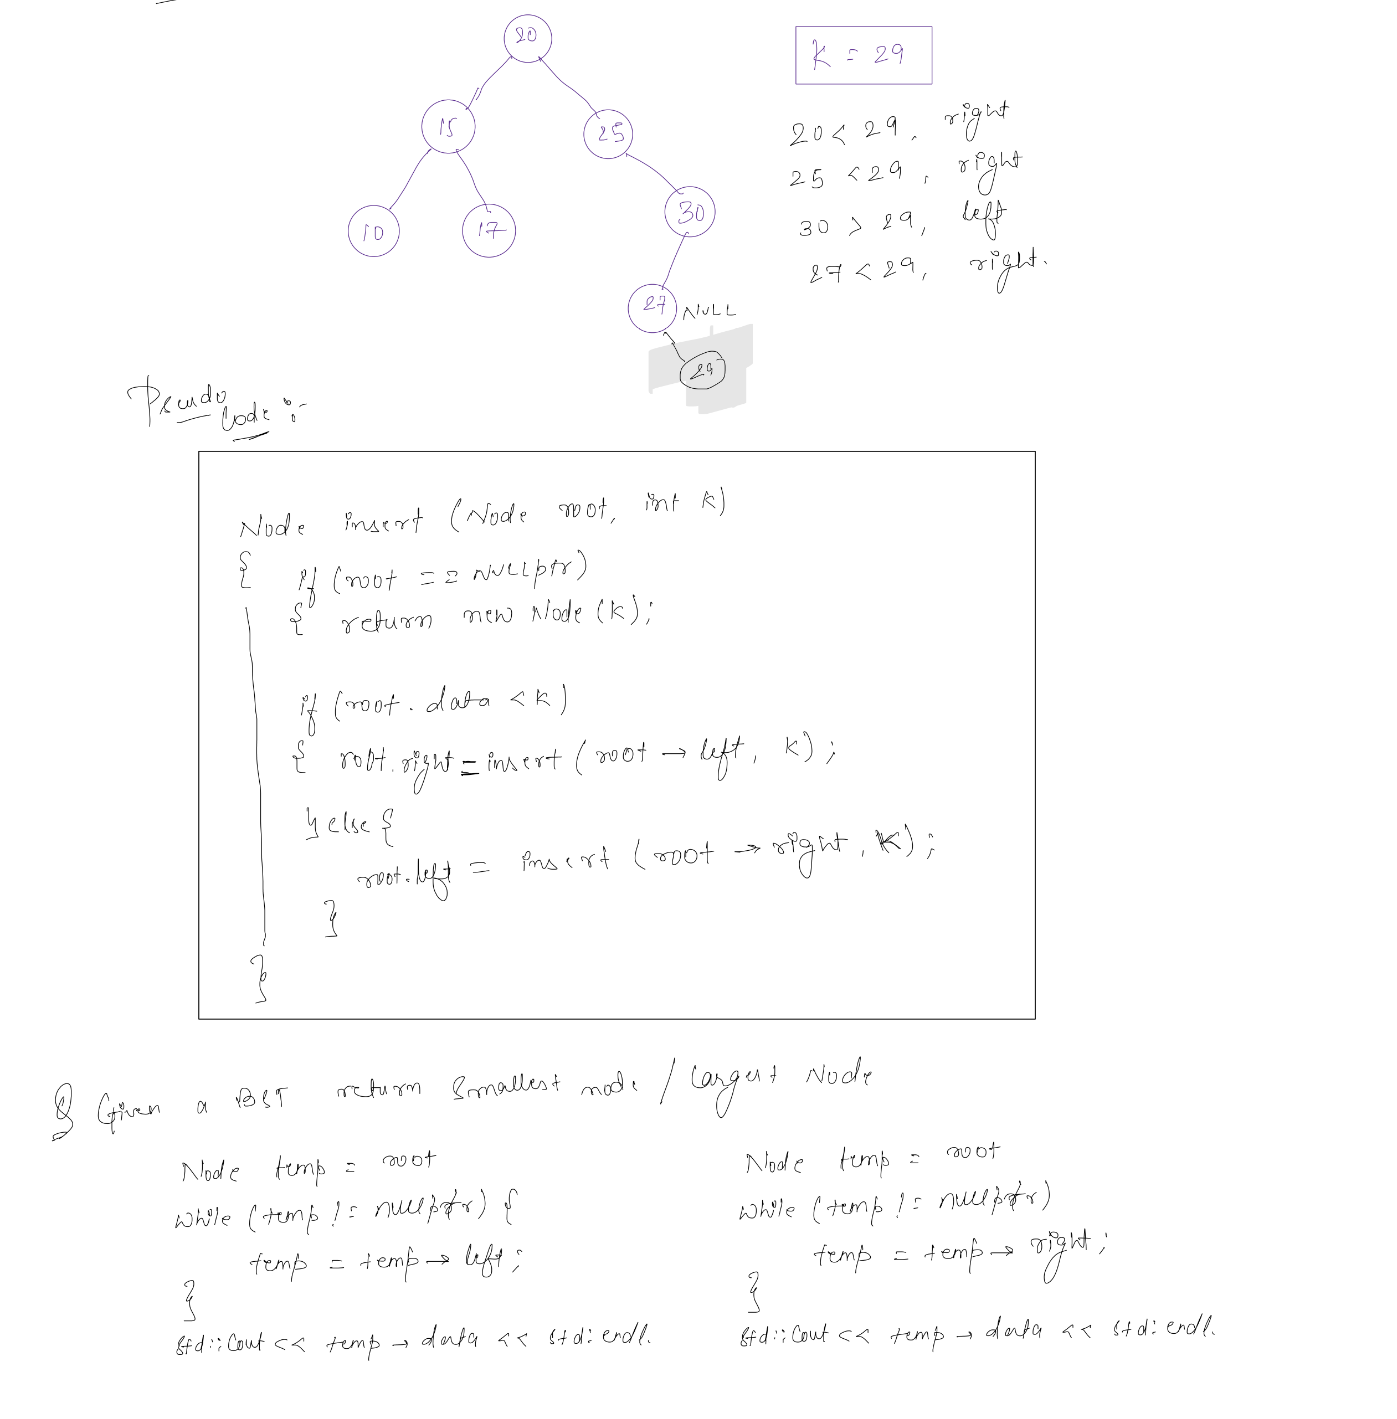 20
K = 29
15
25
20 < 29, right
25 < 29, right
10
17
30
30 > 29, left
27 < 29, right.
27
NULL
29
Pseudo
Code :-
Node insert (Node root, int k)
{ if (root == NULLptr)
{ return new Node (k);
if (root. data < k)
{ root.right = insert (root → left, k);
} else {
root.left = insert (root → right, k);
}
}
Q Given a BST return Smallest node / largest Node
Node temp = root
while (temp != nullptr) {
temp = temp → left;
}
std::Cout << temp → data << std: endl.
Node temp = root
while (temp != nullptr)
temp = temp → right;
}
std::Cout << temp → data << std: endl.